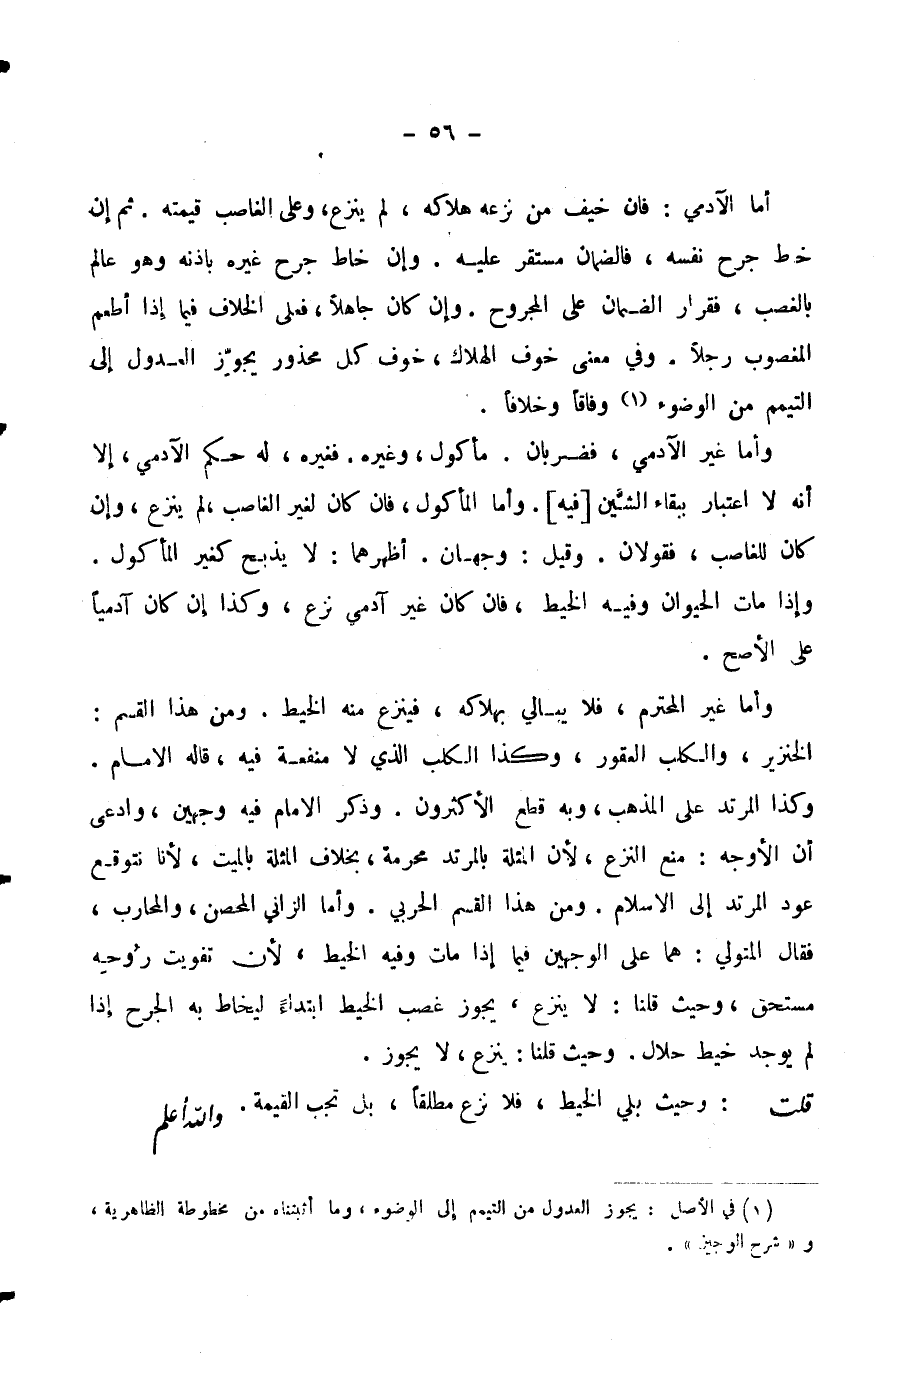 - ٥٦ -
أما الآدمي : فان خيف من نزعه هلاكه ، لم ينزع، وعلى الغاصب قيمته . ثم إن
خاط جرح نفسه ، فالضمان مستقر عليه . وإن خاط جرح غيره باذنه وهو عالم
بالغصب ، فقرار الضمان على المجروح . وإن كان جاهلاً ، فعلى الخلاف فيما إذا أطعم
المغصوب رجلاً . وفي معنى خوف الهلاك ، خوف كل محذور يجوّز العدول إلى
التيمم من الوضوء (١) وفاقاً وخلافاً .
وأما غير الآدمي ، فضربان . مأكول ، وغيره . فغيره ، له حكم الآدمي ، إلا
أنه لا اعتبار ببقاء الشَّين [فيه] . وأما المأكول ، فان كان لغير الغاصب ،لم ينزع ، وإن
كان للغاصب ، فقولان . وقيل : وجهان . أظهرهما : لا يذبح كغير المأكول .
وإذا مات الحيوان وفيه الخيط ، فان كان غير آدمي نزع ، وكذا إن كان آدمياً
على الأصح .
وأما غير المحترم ، فلا يبالي بهلاكه ، فينزع منه الخيط . ومن هذا القسم :
الخنزير ، والكلب العقور ، وكذا الكلب الذي لا منفعة فيه ، قاله الامام .
وكذا المرتد على المذهب ، وبه قطع الأكثرون . وذكر الامام فيه وجهين ، وادعى
أن الأوجه : منع النزع ، لأن المثلة بالمرتد محرمة ، بخلاف المثلة بالميت ، لأنا نتوقع
عود المرتد إلى الاسلام . ومن هذا القسم الحربي . وأما الزاني المحصن ، والمحارب ،
فقال المتولي : هما على الوجهين فيما إذا مات وفيه الخيط ، لأن تفويت روحه
مستحق ، وحيث قلنا : لا ينزع ، يجوز غصب الخيط ابتداءً ليخاط به الجرح إذا
لم يوجد خيط حلال . وحيث قلنا : ينزع ، لا يجوز .
قلت : وحيث بلي الخيط ، فلا نزع مطلقاً ، بل تجب القيمة . والله أعلم
(١) في الأصل : يجوز العدول من التيمم إلى الوضوء ، وما أثبتناه من مخطوطة الظاهرية ،
و « شرح الوجيز » .